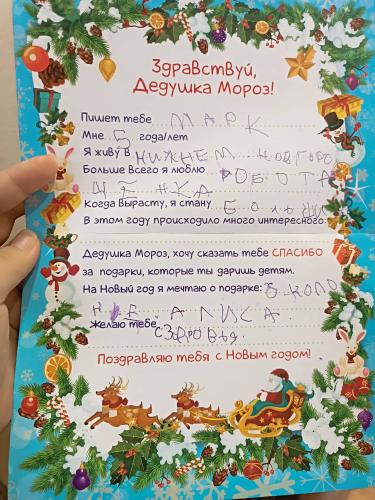 Здравствуй,
Дедушка Мороз!
Пишет тебе МАРК
Мне 5 года/лет
Я живу в НИЖНЕМ НОВГОРО
Больше Всего я люблю РОБОТА
ЩЕНКА
Когда Вырасту, я стану БОЛЬШИ
В этом году происходило много интересного:
Дедушка Мороз, хочу сказать тебе СПАСИБО
за подарки, которые ты даришь детям.
На Новый год я мечтаю о подарке: О КОЛО
НКЕ АЛИСА.
Желаю тебе
ЗДРОВЬЯ.
Поздравляю тебя с Новым годом!